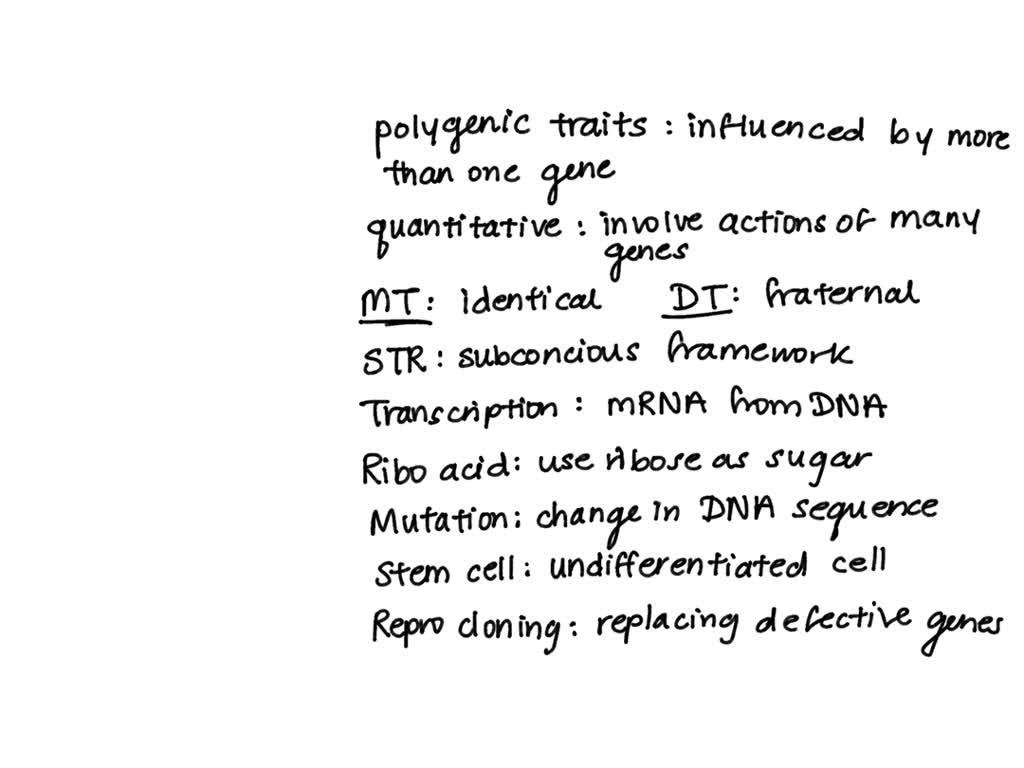 polygenic traits : influenced by more
than one gene
quantitative : involve actions of many
genes
MT : identical DT : fraternal
STR : subconcious framework
Transcription : mRNA from DNA
Ribo acid : use ribose as sugar
Mutation : change in DNA sequence
Stem cell : undifferentiated cell
Repro cloning : replacing defective genes